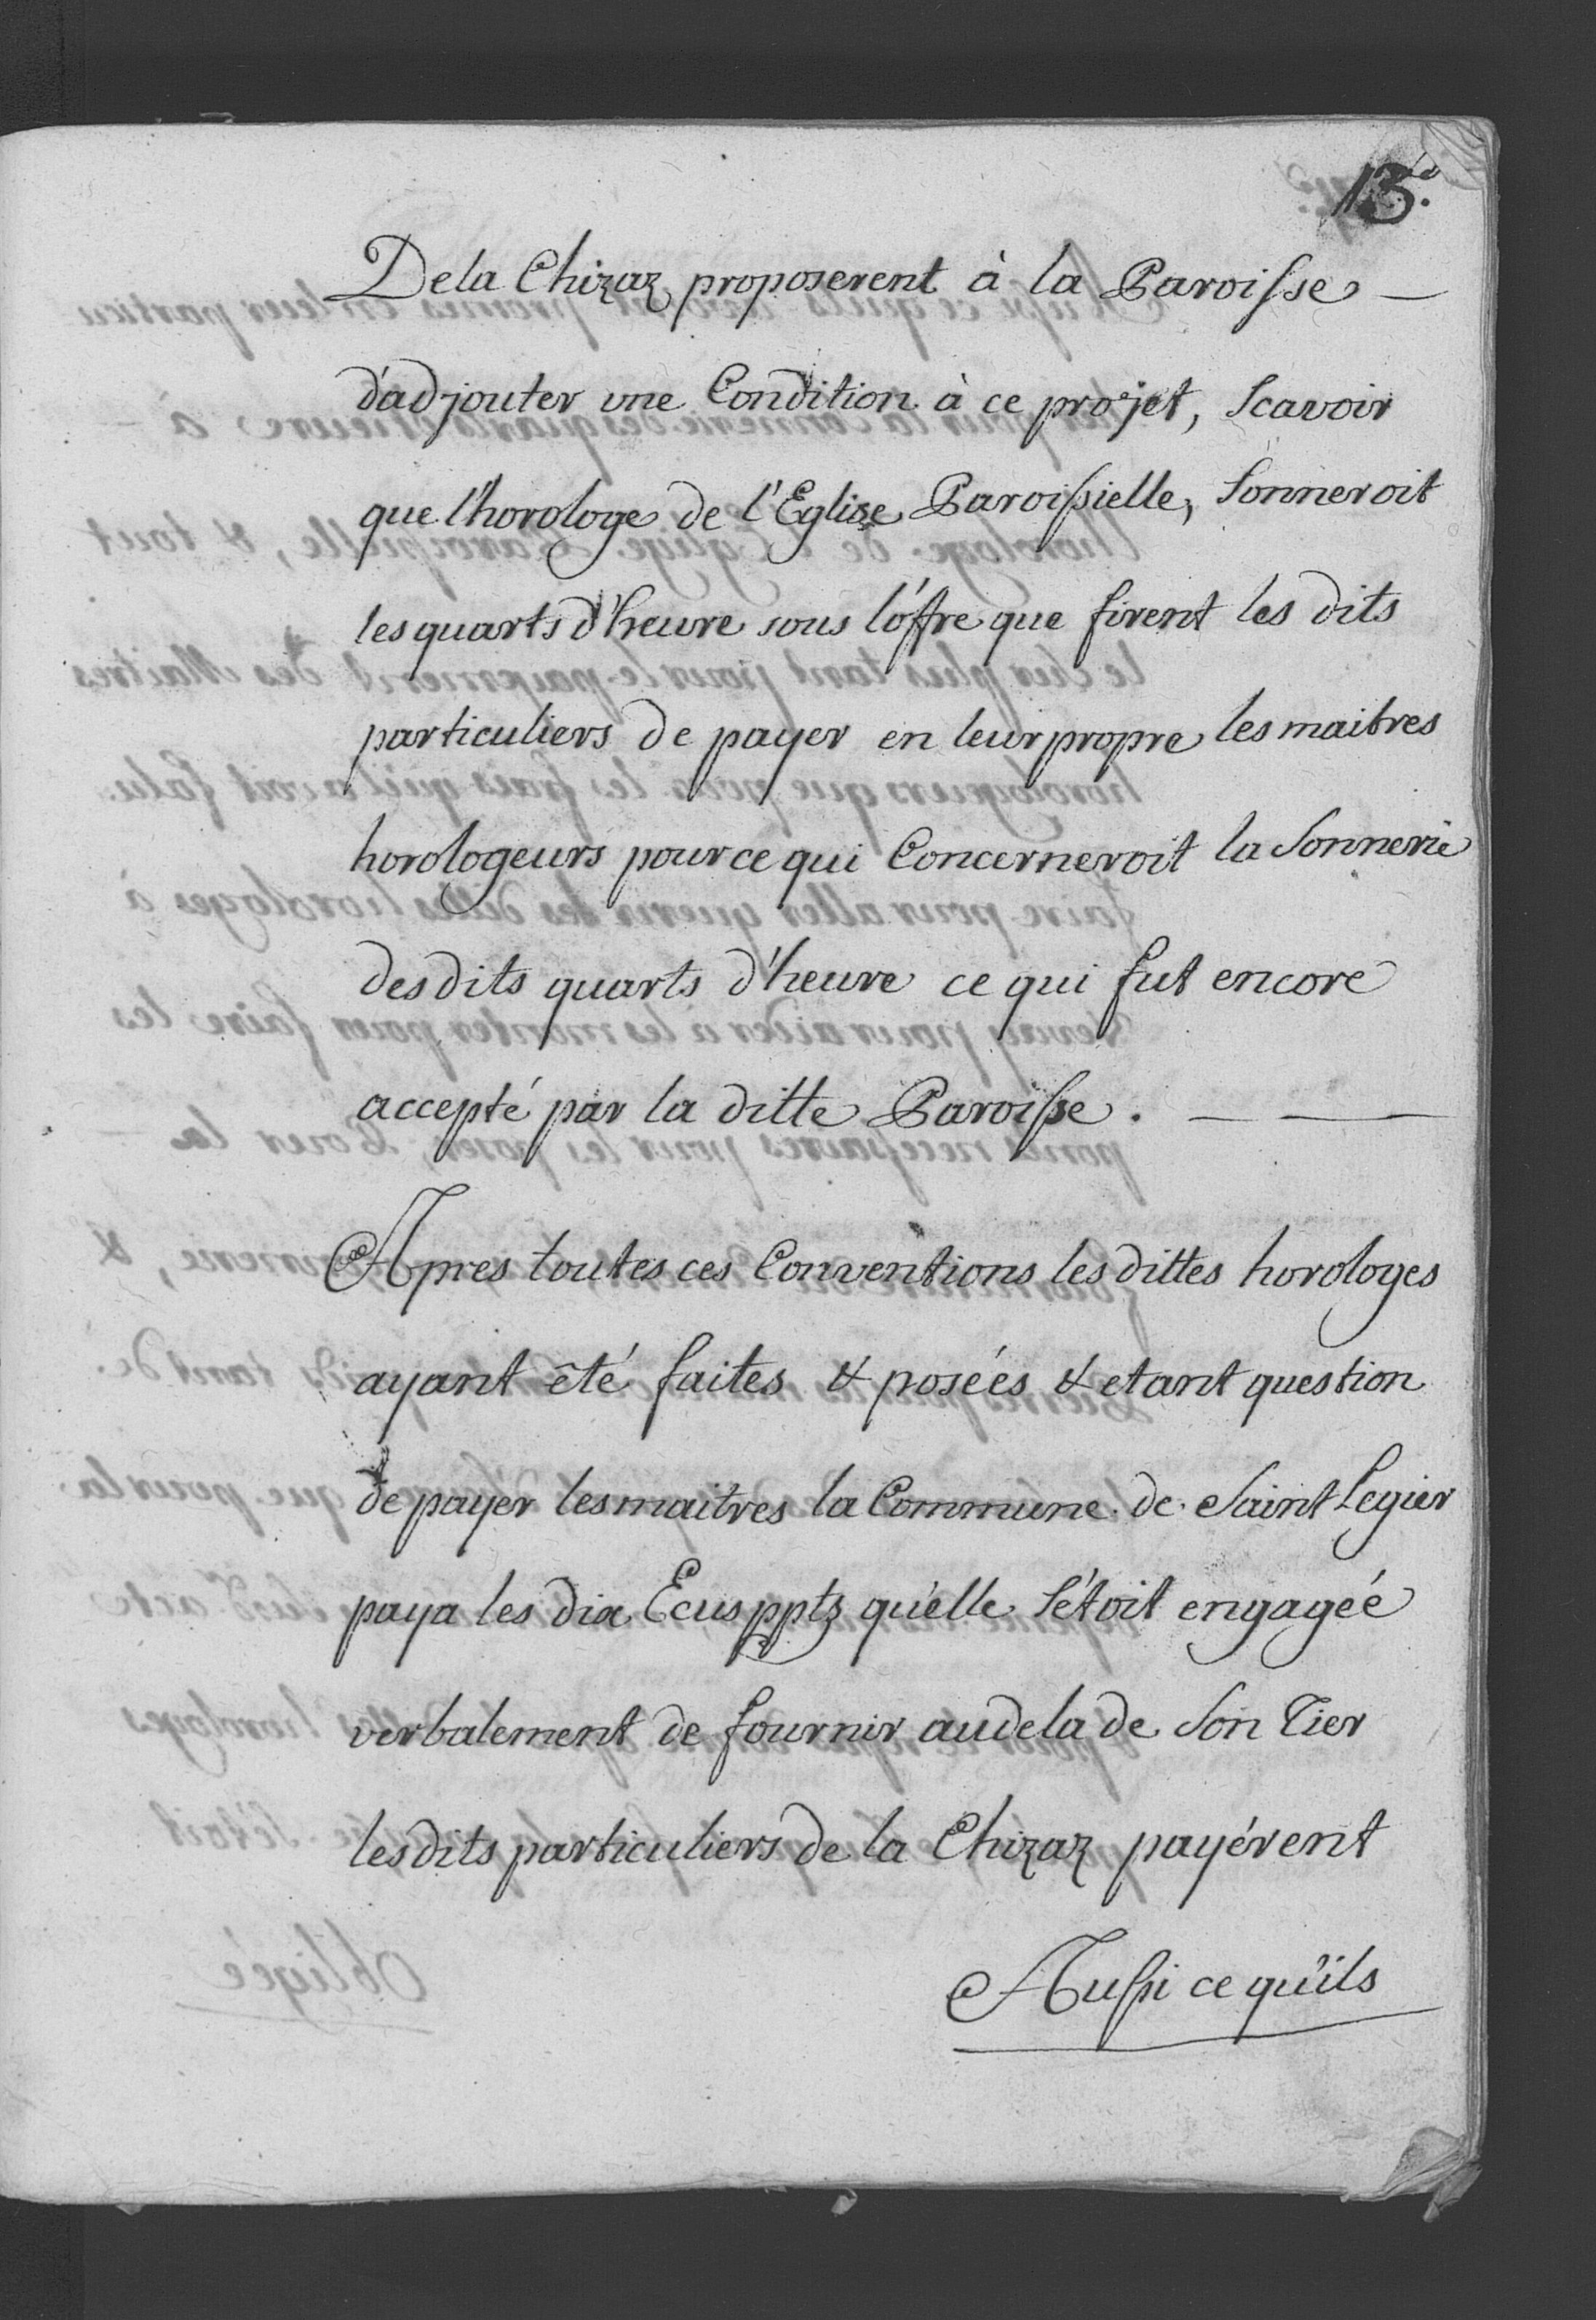 13.
Dela Chizaz proposerent à la Paroisse —
d'adjouter une Condition à ce projet, Scavoir
que l'horologe de l'Eglise Paroissielle, Sonneroit
les quarts d'heure sous l'offre que firent les dits
particuliers de payer en leur propre les maitres
horologeurs pour ce qui Concerneroit la Sonnerie
des dits quarts d'heure ce qui fut encore
accepté par la ditte Paroisse. — —
Apres toutes ces Conventions les dittes horologes
ayant êté faites & posées & etant question
de payer les maitres la Commune de Saint Legier
paya les dix Ecus pptz qu'elle S'étoit engagéé
verbalement de fournir audela de Son Tier
les dits particuliers de la Chizaz payérent
Aussi ce qu'ils